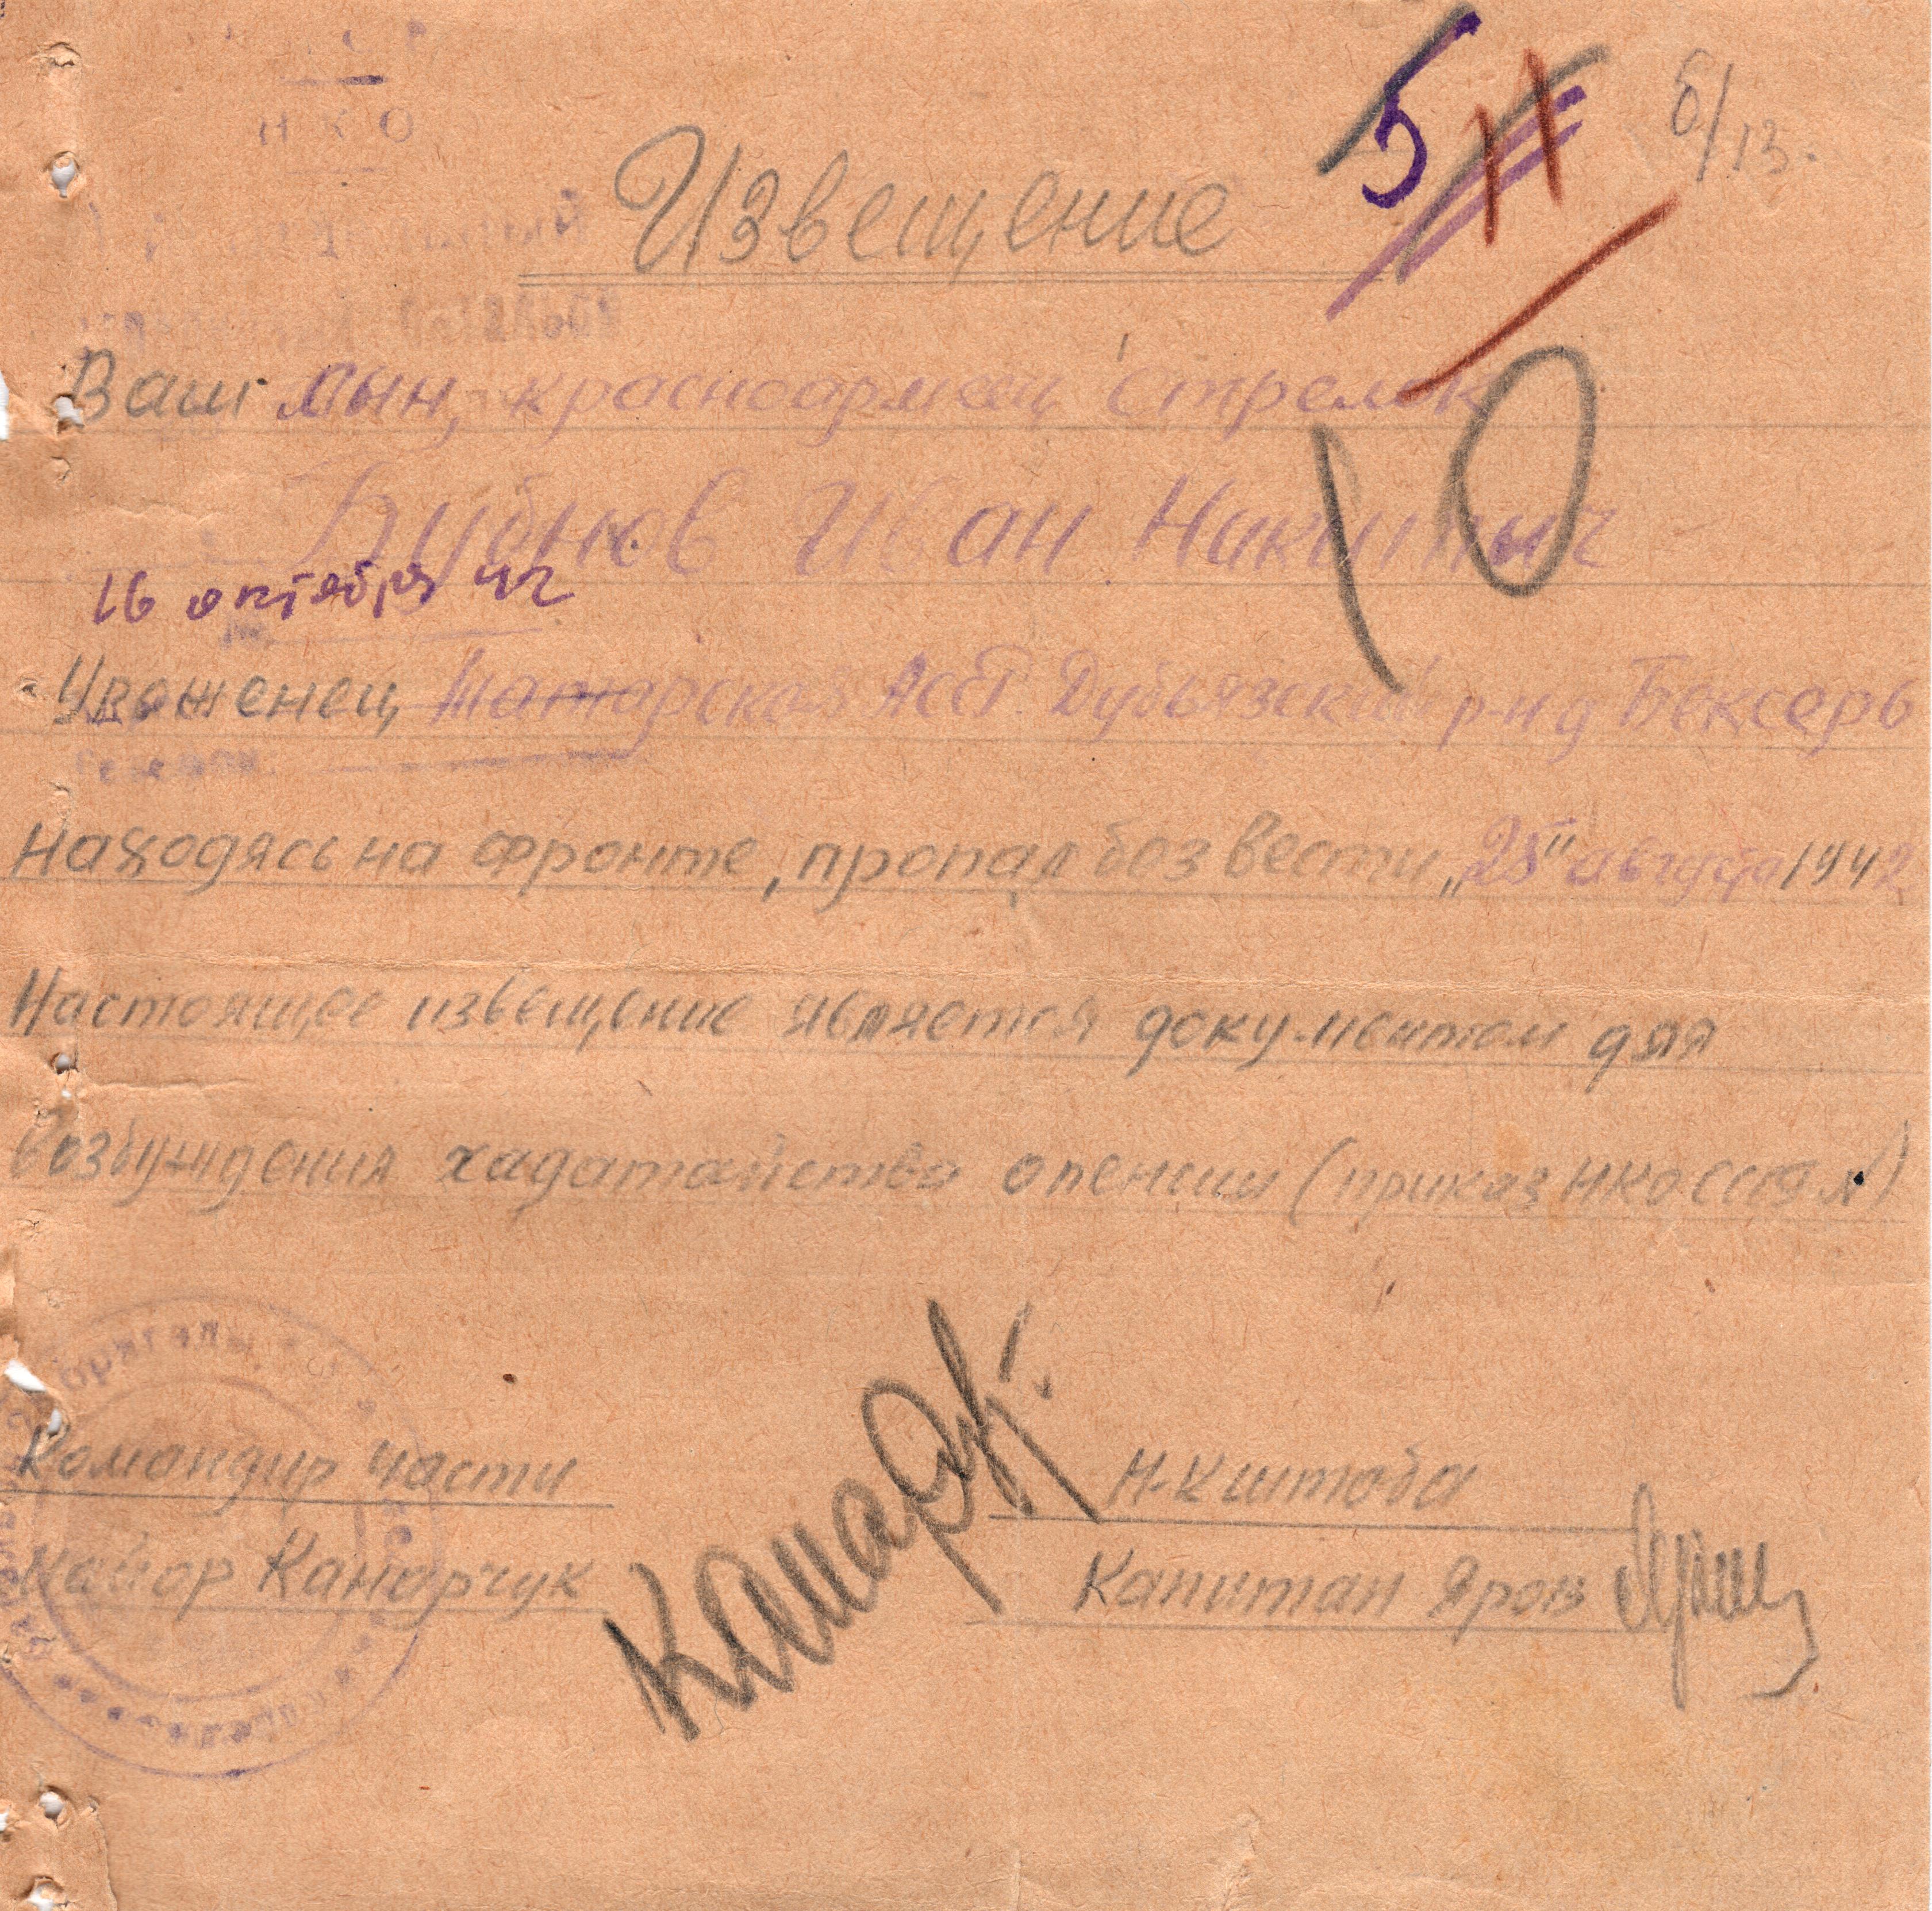 5 11 6/13.
НКО
Извещение
10
Ваш сын, красноармеец стрелок
Бубнов Иван Никитыч
16 октября 42
Уроженец Татарской АССР Дубьязский р-н д Бексерь
Находясь на фронте, пропал без вести „25" августа 1942
Настоящее извещение является документом для
возбуждения хадатайства о пенсии (приказ НКО СССР №)
Командир части
Н-к штаба
Майор Канарчук
Капитан Яров